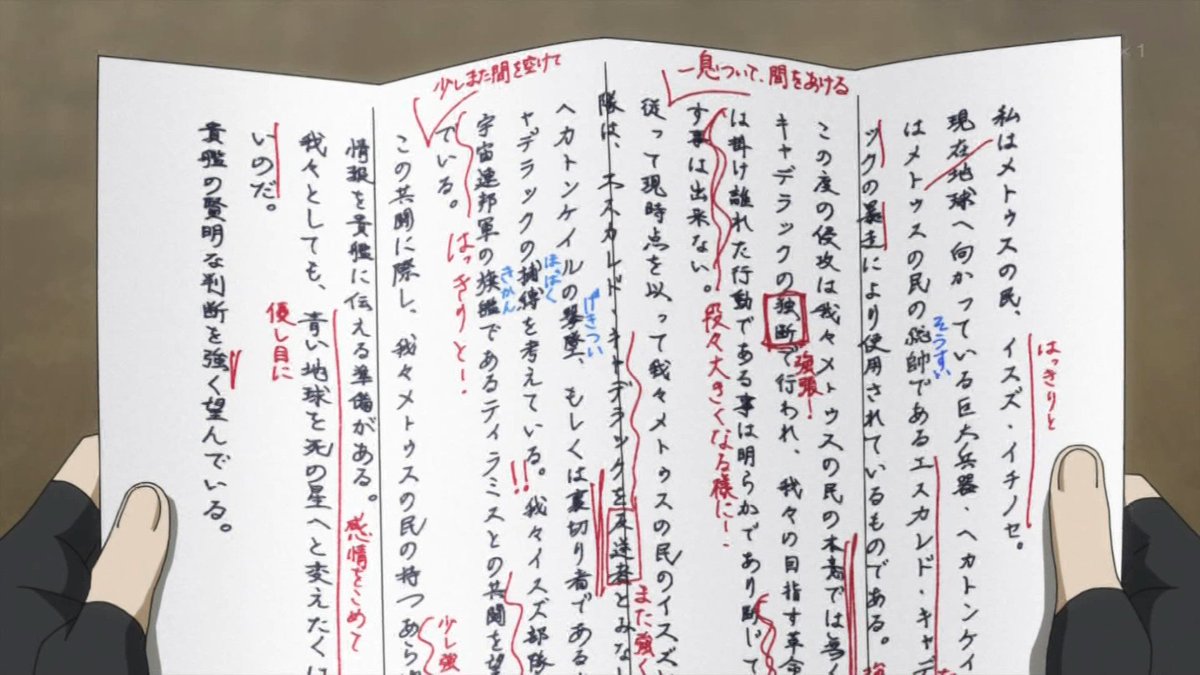 私はメトゥスの民、イスズ・イチノセ。
はっきりと
現在地球へ向かっている巨大兵器、ヘカトンケイ
はメトゥスの民の総帥であるエスカルド・キャデ
そうすい
ックの暴走により使用されているものである。
この度の侵攻は我々メトゥスの民の本意では無く
キャデラックの独断で行われ、我々の目指す革命
強張!
は掛け離れた行動である事は明らかであり断じて
す事は出来ない。
段々大きくなる様に!
一息ついて、間をあける
従って現時点を以って我々メトゥスの民のイスズ
隊は、エスカルド・キャデラックを反逆者とみなし
また強く
ヘカトンケイルの撃墜、もしくは裏切り者である
げきつい
ャデラックの捕縛を考えている。我々イスズ部隊
ほばく
!!
宇宙連邦軍の旗艦であるティラミスとの共闘を望
きかん
でいる。
はっきりとー!
少しまた間を空けて
この共闘に際し、我々メトゥスの民の持つあら
少し強
情報を貴艦に伝える準備がある。
感情をこめて
我々としても、青い地球を死の星へと変えたくは
いのだ。
優し目に
貴艦の賢明な判断を強く望んでいる。
×1